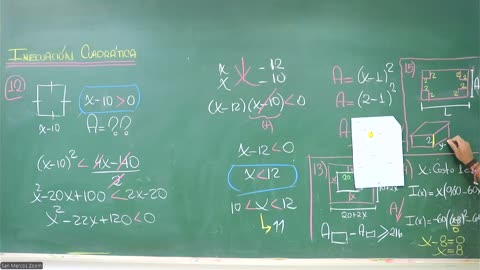 INECUACIÓN CUADRÁTICA
12
x-10
x-10>0
A=??
(x-10)² < 4x-140
x²-20x+100 < 2x-20
x²-22x+120<0
x -12
x -10
(x-12)(x-10)<0
(A)
x-12<0
x<12
10<x<12
11
A=(x-1)²
A=(2-1)²
A
15)
L
2
13)
20
20+2x
A□-A□≥216
x: Costo
I(x)=x(960-60x
x-8=0
x=8
San Marcos Zoom